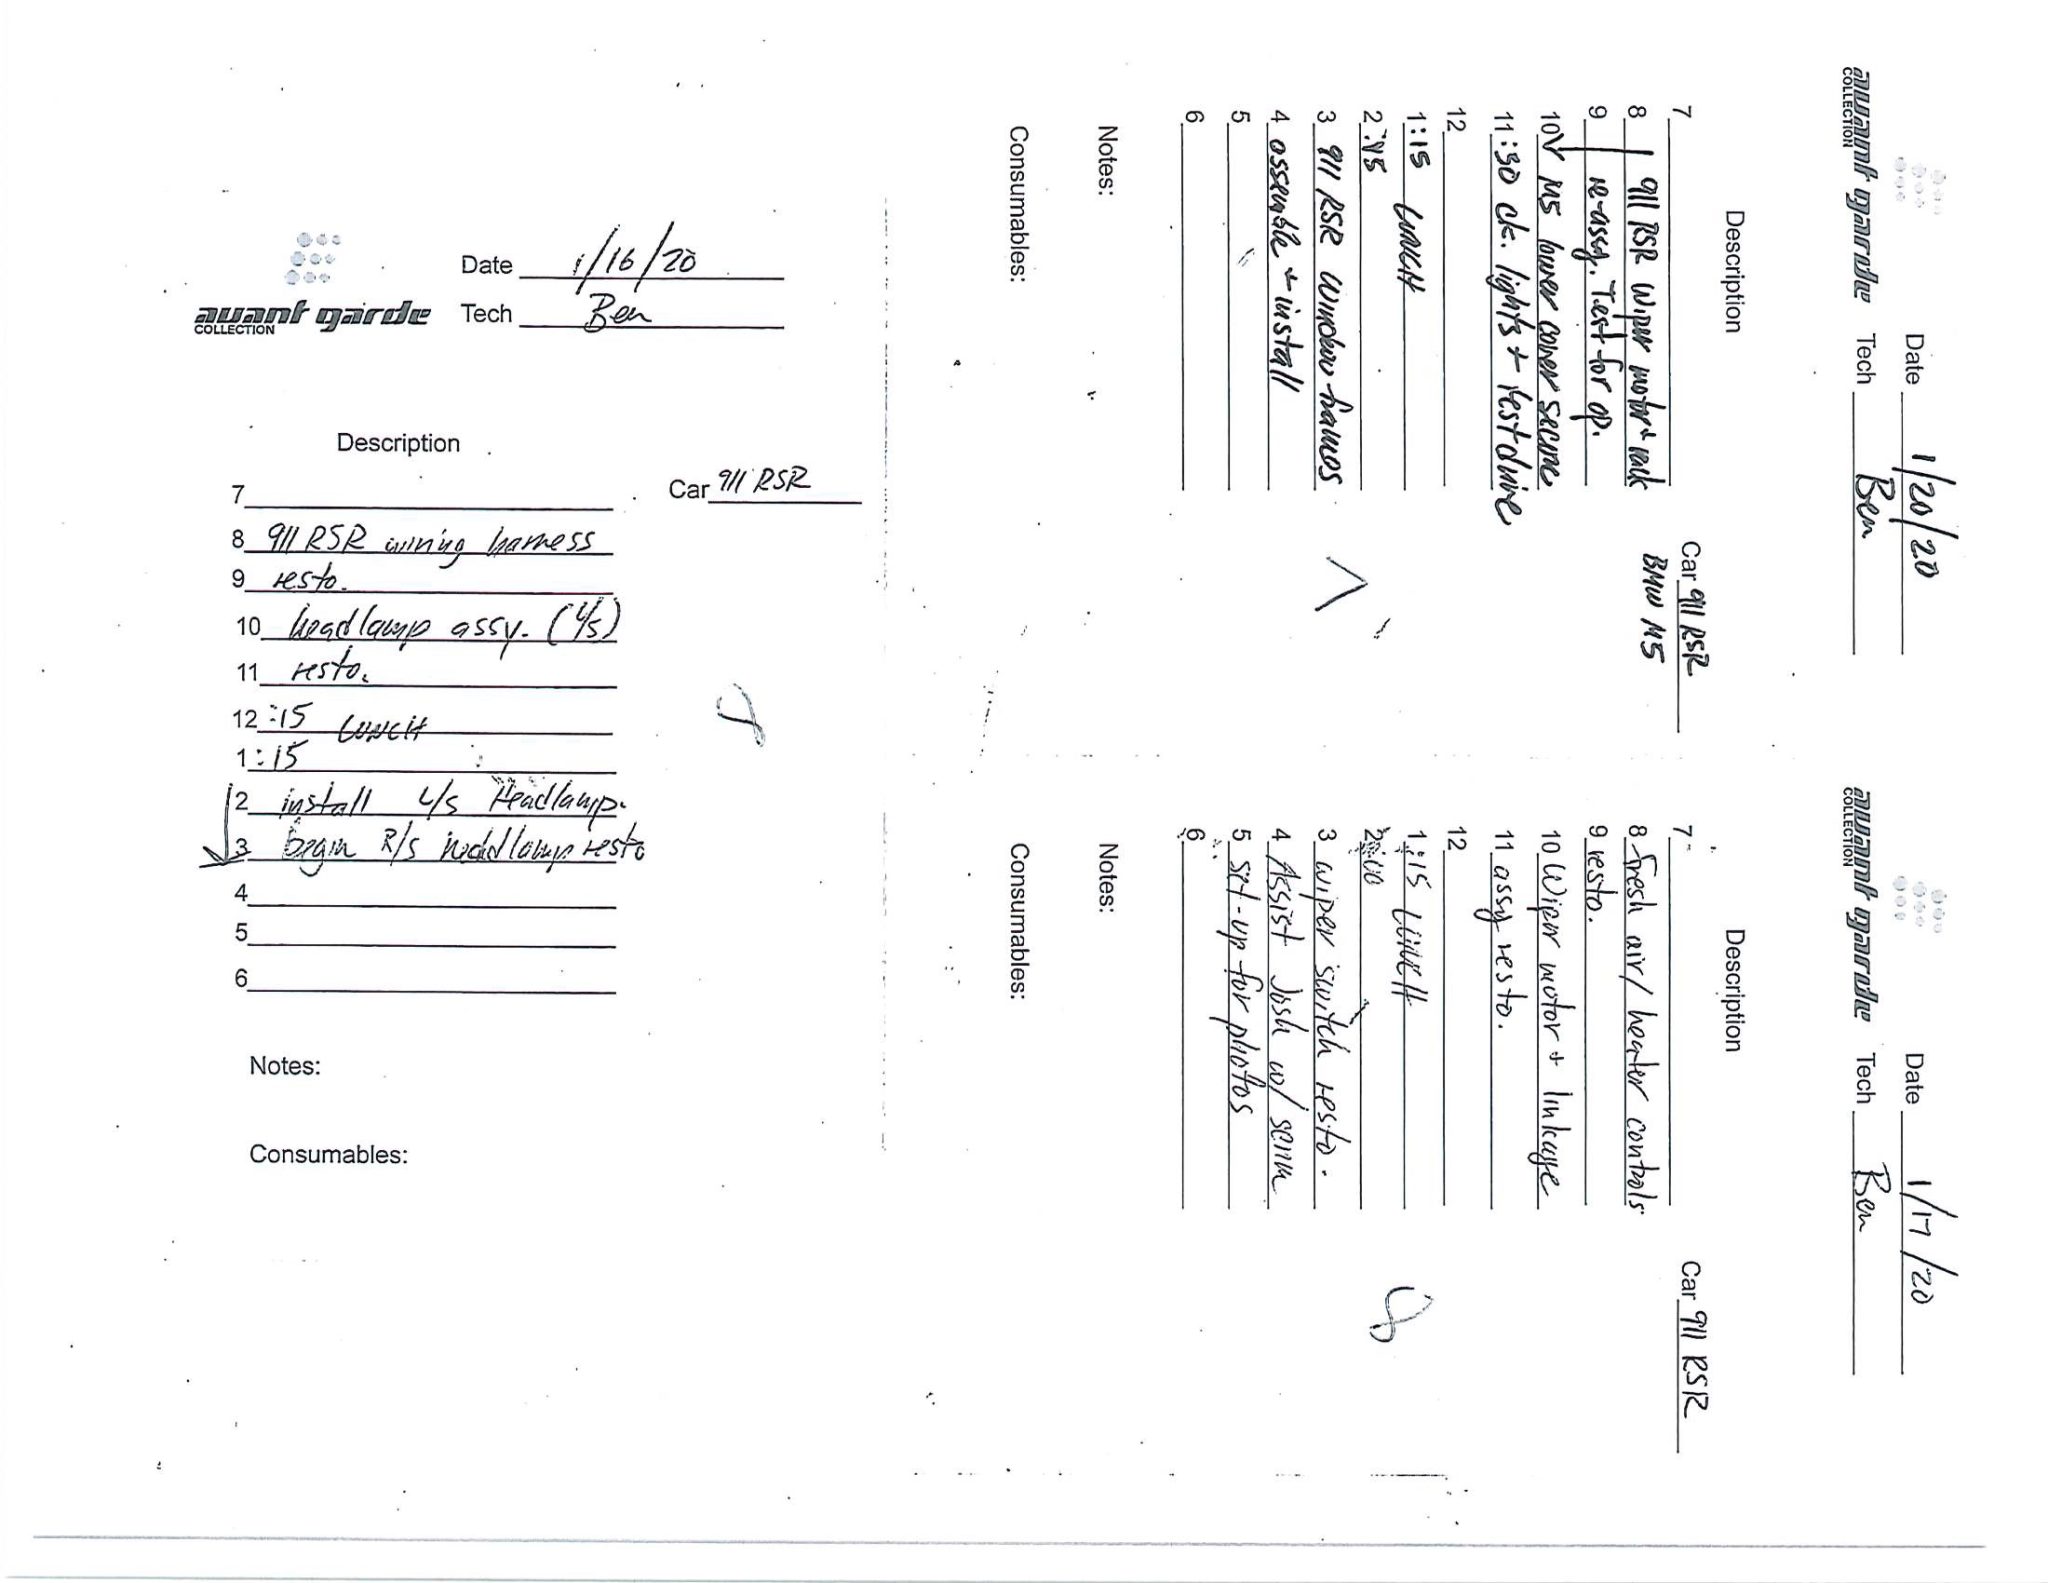 avant garde
COLLECTION
Date 1/16/20
Tech Ben
Description
Car 911 RSR
7
8 911 RSR wiring harness
9 resto.
10 headlamp assy. (L/S)
11 resto.
12 :15 LUNCH
1 :15
2 install L/S Headlamp.
3 begin R/S headlamp resto
4
5
6
8
Notes:
Consumables:
avant garde
COLLECTION
Date 1/20/20
Tech Ben
Description
Car 911 RSR
BMW M5
7
8 911 RSR Wiper motor + rack
9 re-assy. Test for op.
10 M5 lower cover secure
11 :30 ck. lights + testdrive
12
1 :15 LUNCH
2 :45
3 911 RSR Window frames
4 assemble + install
5
6
7
Notes:
Consumables:
avant garde
COLLECTION
Date 1/17/20
Tech Ben
Description
Car 911 RSR
7
8 fresh air/ heater controls
9 resto.
10 Wiper motor + linkage
11 assy resto.
12
1 :15 LUNCH
2 :00
3 wiper switch resto.
4 Assist Josh w/
5 set-up for photos
6
8
Notes:
Consumables: